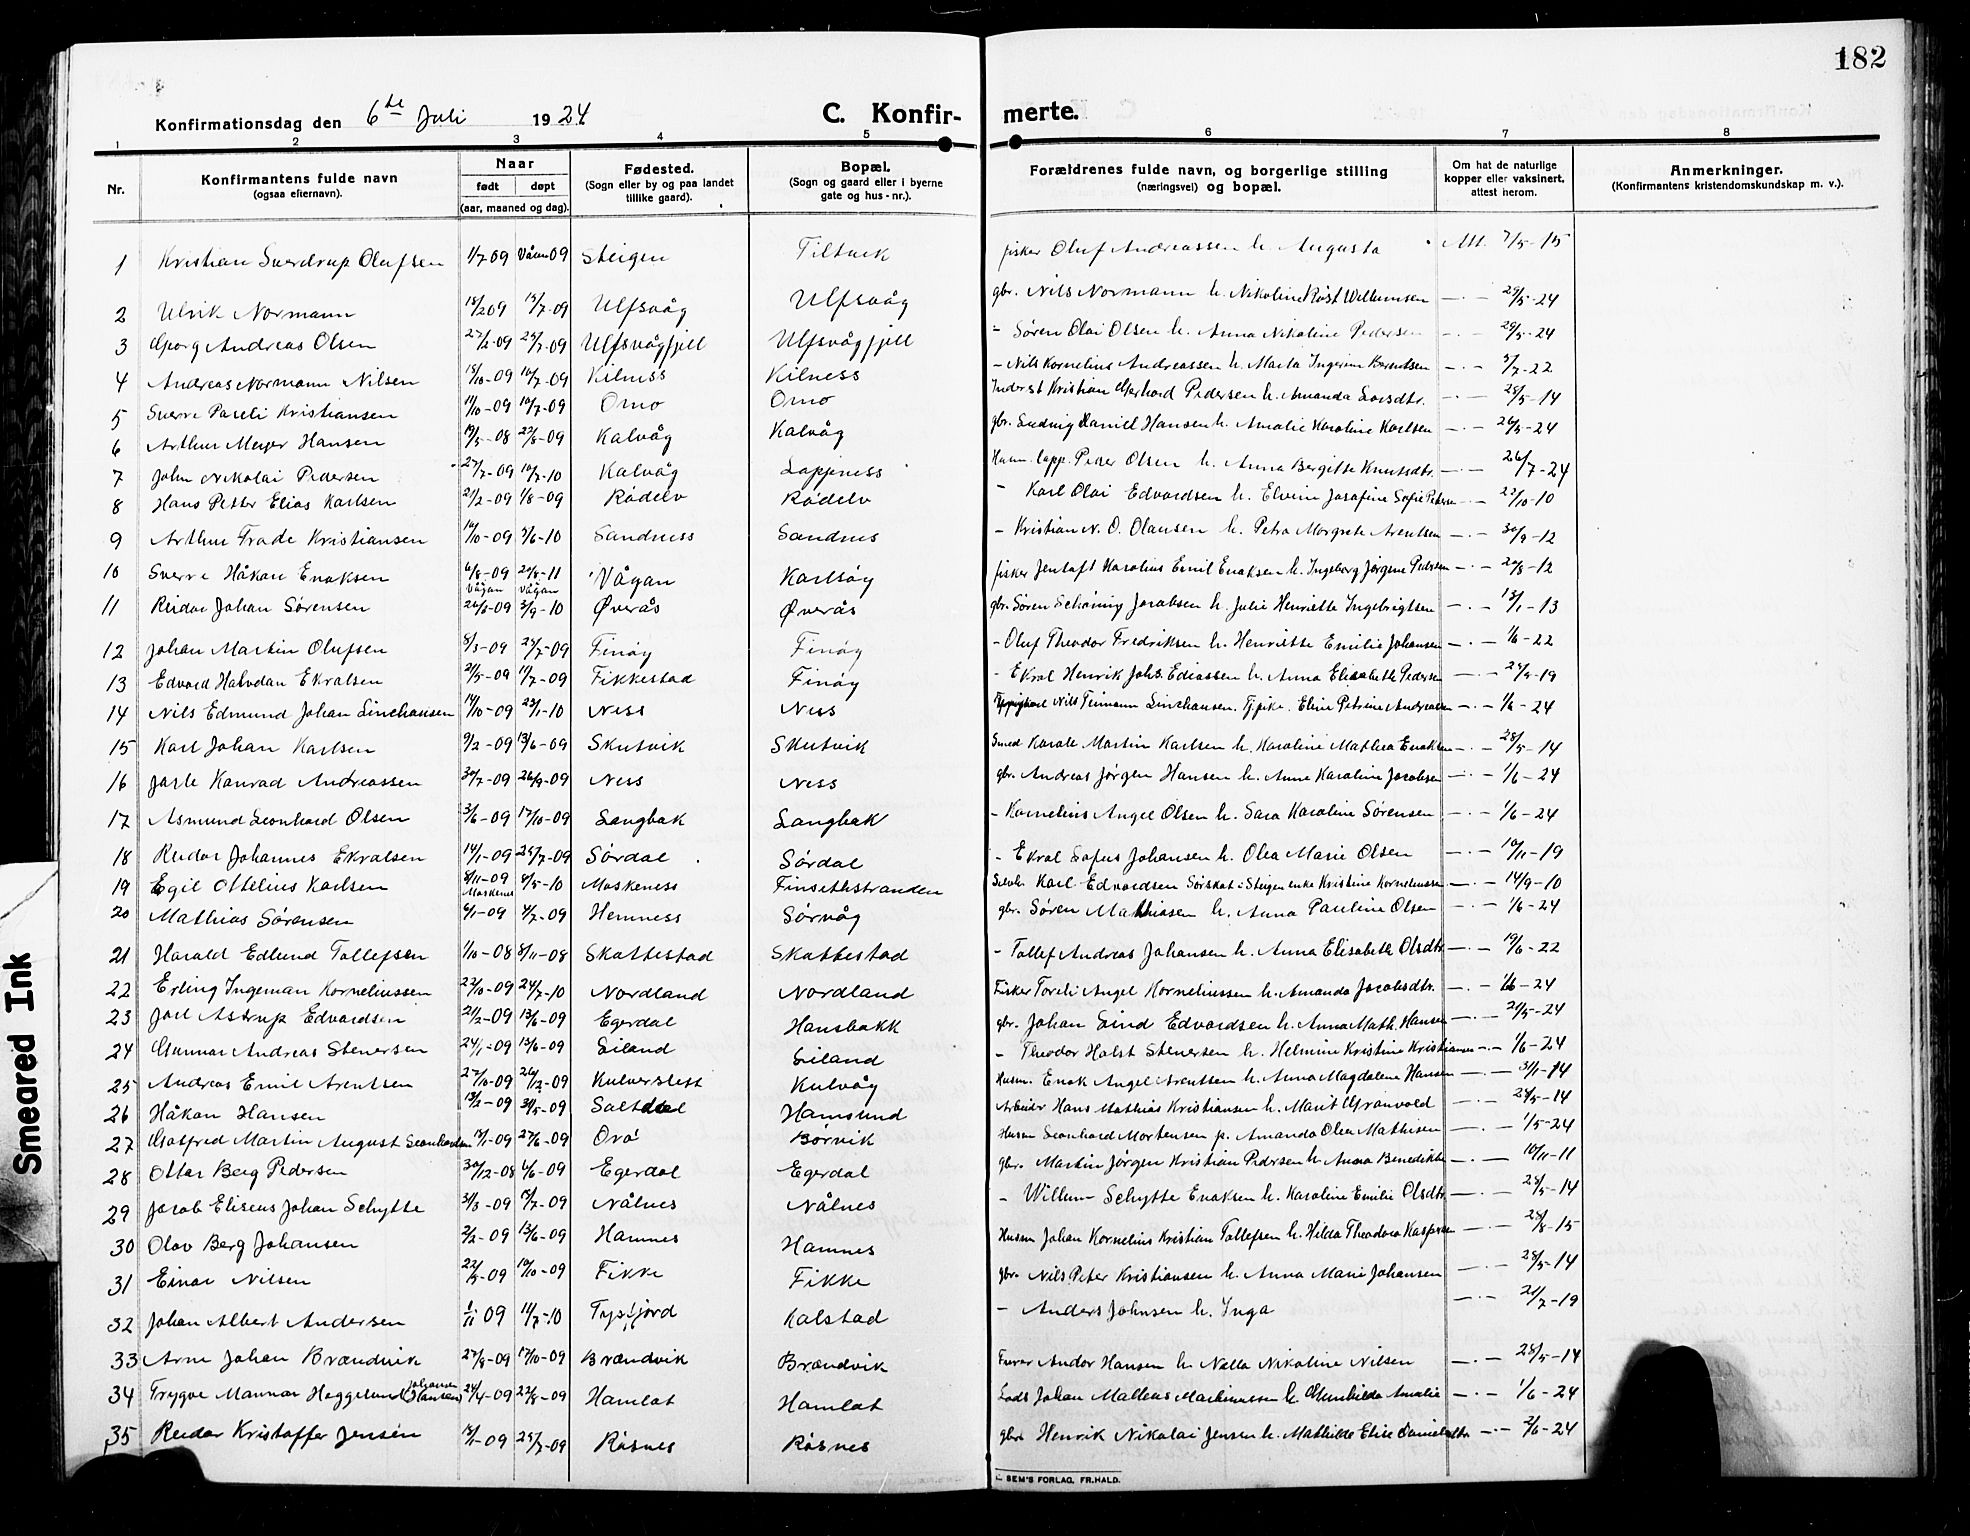 182
Konfirmationsdag den 6te Juli 1924 C. Konfirmerte.
1 2 3 4 5 6 7 8
Nr. Konfirmantens fulde navn (ogsaa efternavn). Naar født døpt (aar, maaned og dag). Fødested. (Sogn eller by og paa landet tillike gaard). Bopæl. (Sogn og gaard eller i byerne gate og hus-nr.). Forældrenes fulde navn, og borgerlige stilling (næringsvei) og bopæl. Om hat de naturlige kopper eller vaksinert, attest herom. Anmerkninger. (Konfirmantens kristendomskundskap m. v.).
1 Kristian Sverdrup Olufsen 1/7 09 Våren 09 Steigen fisker Oluf Andreassen h. Augusta Att. 7/5-15
2 Ulrik Normann 18/2 09 15/7-09 Ulfsvåg Ulfsvåg gbr. Nils Normann h. Nikoline Røst Willumsen -.- 29/5-24
3 Georg Andreas Olsen 27/2-09 25/7-09 Ulfsvågfjell Ulfsvågfjell - Søren Olai Olsen h. Anna Nikoline Pedersen -.- 29/5-24
4 Andreas Normann Nilsen 18/10-09 10/7-09 Kilness Kilness - Nils Kornelius Andreassen h. Marta Ingerine Berntsen -.- 3/7-22
5 Sverre Pareli Kristiansen 11/10-09 10/7-09 Omo Omo Inderst Kristian Gerhard Pedersen h. Amanda Larsdtr. -.- 25/5-14
6 Arthur Meyer Hansen 19/5-08 22/8-09 Kalvåg Kalvåg gbr. Ludvig Daniel Hansen h. Amalie Karoline Karlsen -.- 26/5-24
7 John Nikolai Pedersen 27/7-09 10/7-10 Kalvåg Lappness Husm. lapp. Peder Olsen h. Anna Bergitte Knutsdtr. -.- 26/7-24
8 Hans Petter Elias Karlsen 21/2-09 1/8-09 Rådelv Rådelv - Karl Olai Edvardsen h. Elvine Josafine Sofie Petersen -.- 22/10-10
9 Arthur Frode Kristiansen 10/10-09 5/6-10 Sandness Sandnes - Kristian N. O. Olausen h. Petra Margrete Arentsen -.- 30/9-12
10 Sverre Håkan Enoksen 6/8-09 Vågan 20/8-11 Vågan Vågan Karlsøy fisker Jentoft Karolius Emil Enoksen h. Ingeborg Jørgine Pedersen -.- 20/8-12
11 Reidar Johan Sørensen 26/6-09 3/9-10 Øverås Øverås gbr. Søren Schøning Jacobsen h. Julie Henriette Ingebrigtsen -.- 13/1-13
12 Johan Martin Olufsen 8/3-09 25/7-09 Finøy Finøy - Oluf Theodor Fredriksen h. Henriette Emilie Johansen -.- 1/6-22
13 Edvard Halvdan Ekralsen 21/5-09 11/7-09 Fikkestad Finøy - Ekral Henrik Johs. Ediassen h. Anna Elisabeth Pedersen -.- 25/9-19
14 Nils Edmund Johan Linchausen 14/10-09 23/1-10 Ness Ness Nils Teimann Linchausen. Tj.pike. Eline Petrine Andreasen -.- 1/6-24
15 Karl Johan Karlsen 9/2-09 13/6-09 Skutvik Skutvik Smed Karole Martin Karlsen h. Karoline Mathea Enoksen -.- 28/5-14
16 Jarle Konrad Andreassen 30/7-09 26/9-09 Ness Ness gbr. Andreas Jørgen Hansen h. Anne Karoline Jacobsen -.- 1/6-24
17 Asmund Leonhard Olsen 3/6-09 17/10-09 Langbak Langbak - Kornelius Angel Olsen h. Sara Karoline Sørensen -.- 1/6-24
18 Reidar Johannes Ekralsen 14/1-09 25/7-09 Sørdal Sørdal - Ekral Sofus Johansen h. Olea Marie Olsen -.- 10/11-19
19 Egil Ottelius Karlsen 8/11-09 Moskenes 8/5-10 Moskeness Finsethstranden Karl Edvardsen Sørskot i Steigen enke Kristine Korneliussen -.- 14/9-10
20 Mathias Sørensen 6/1-09 4/7-09 Hemness Sørvåg gbr. Søren Mathiasen h. Anna Pauline Olsen -.- 1/6-24
21 Harald Edlund Tollefsen 1/10-08 8/11-08 Skattestad Skattestad - Tollef Andreas Johansen h. Anna Elisabeth Olsdtr. -.- 19/6-22
22 Erling Ingeman Korneliussen 22/10-09 24/7-10 Nordland Nordland Fisker Toreli Angel Korneliussen h. Amanda Jacobsdtr. -.- 1/6-24
23 Joel Astrup Edvardsen 21/2-09 13/6-09 Egerdal Hansbakk gbr. Johan Lind Edvardsen h. Anna Math. Hansen -.- 21/5-24
24 Gunnar Andreas Stenersen 24/1-09 13/6-09 Liland Liland - Theodor Holst Stenersen h. Helmine Kristine Kristiansen -.- 1/6-24
25 Andreas Emil Arentsen 27/10-09 26/12-09 Kulverslett Kulvåg Husm. Enok Angel Arentsen h. Anna Magdalene Hansen -.- 31/1-14
26 Håkon Hansen 13/2-09 31/5-09 Saltdal Hamsund Arbeider Hans Mathias Kristiansen h. Marit Granvold -.- 24/5-14
27 Gotfred Martin August Leonhardsen 15/1-09 27/6-09 Ovå Børvik Husm Leonhard Mortensen p. Amanda Olea Mathisen -.- 1/5-24
28 Ottar Berg Pedersen 30/12-08 6/6-09 Egerdal Egerdal gbr. Martin Jørgen Kristian Pedersen h. Anna Benedikte -.- 10/11-11
29 Jacob Eliseus Johan Schytte 31/3-09 18/7-09 Nålnes Nålnes - Willum Schytte Enoksen h. Karoline Emilie Olsdtr. -.- 25/5-14
30 Olav Berg Johansen 2/2-09 13/6-09 Hamnes Hamnes Husm Johan Kornelius Kristian Tollefsen h. Hilda Theodora Kaspersen -.- 28/8-15
31 Einar Nilsen 22/5-09 10/10-09 Fikke Fikke gbr. Nils Peter Kristiansen h. Anna Marie Johansen -.- 25/5-14
32 Johan Albert Andersen 1/11 09 11/7-10 Tysfjord Kalstad - Anders Johnsen h. Inga -.- 21/7-19
33 Arne Johan Brændvik 27/8-09 17/10-09 Brændvik Brændvik Furer Andor Hansen h. Nella Nikoline Nilsen -.- 25/5-14
34 Trygve Mannar Heggelund Johansen (Hansen) 24/4-09 22/8-09 Hamlot Hamlot Lods Johan Matheus Martinussen h. Gunhilda Amalie -.- 1/6-24
35 Reidar Kristoffer Jensen 15/1-09 25/7-09 Råsnes Råsnes gbr. Henrik Nikolai Jensen h. Mathilde Elise Danielsdtr -.- 2/6-24
SEM'S FORLAG, FR.HALD.
Smeared Ink